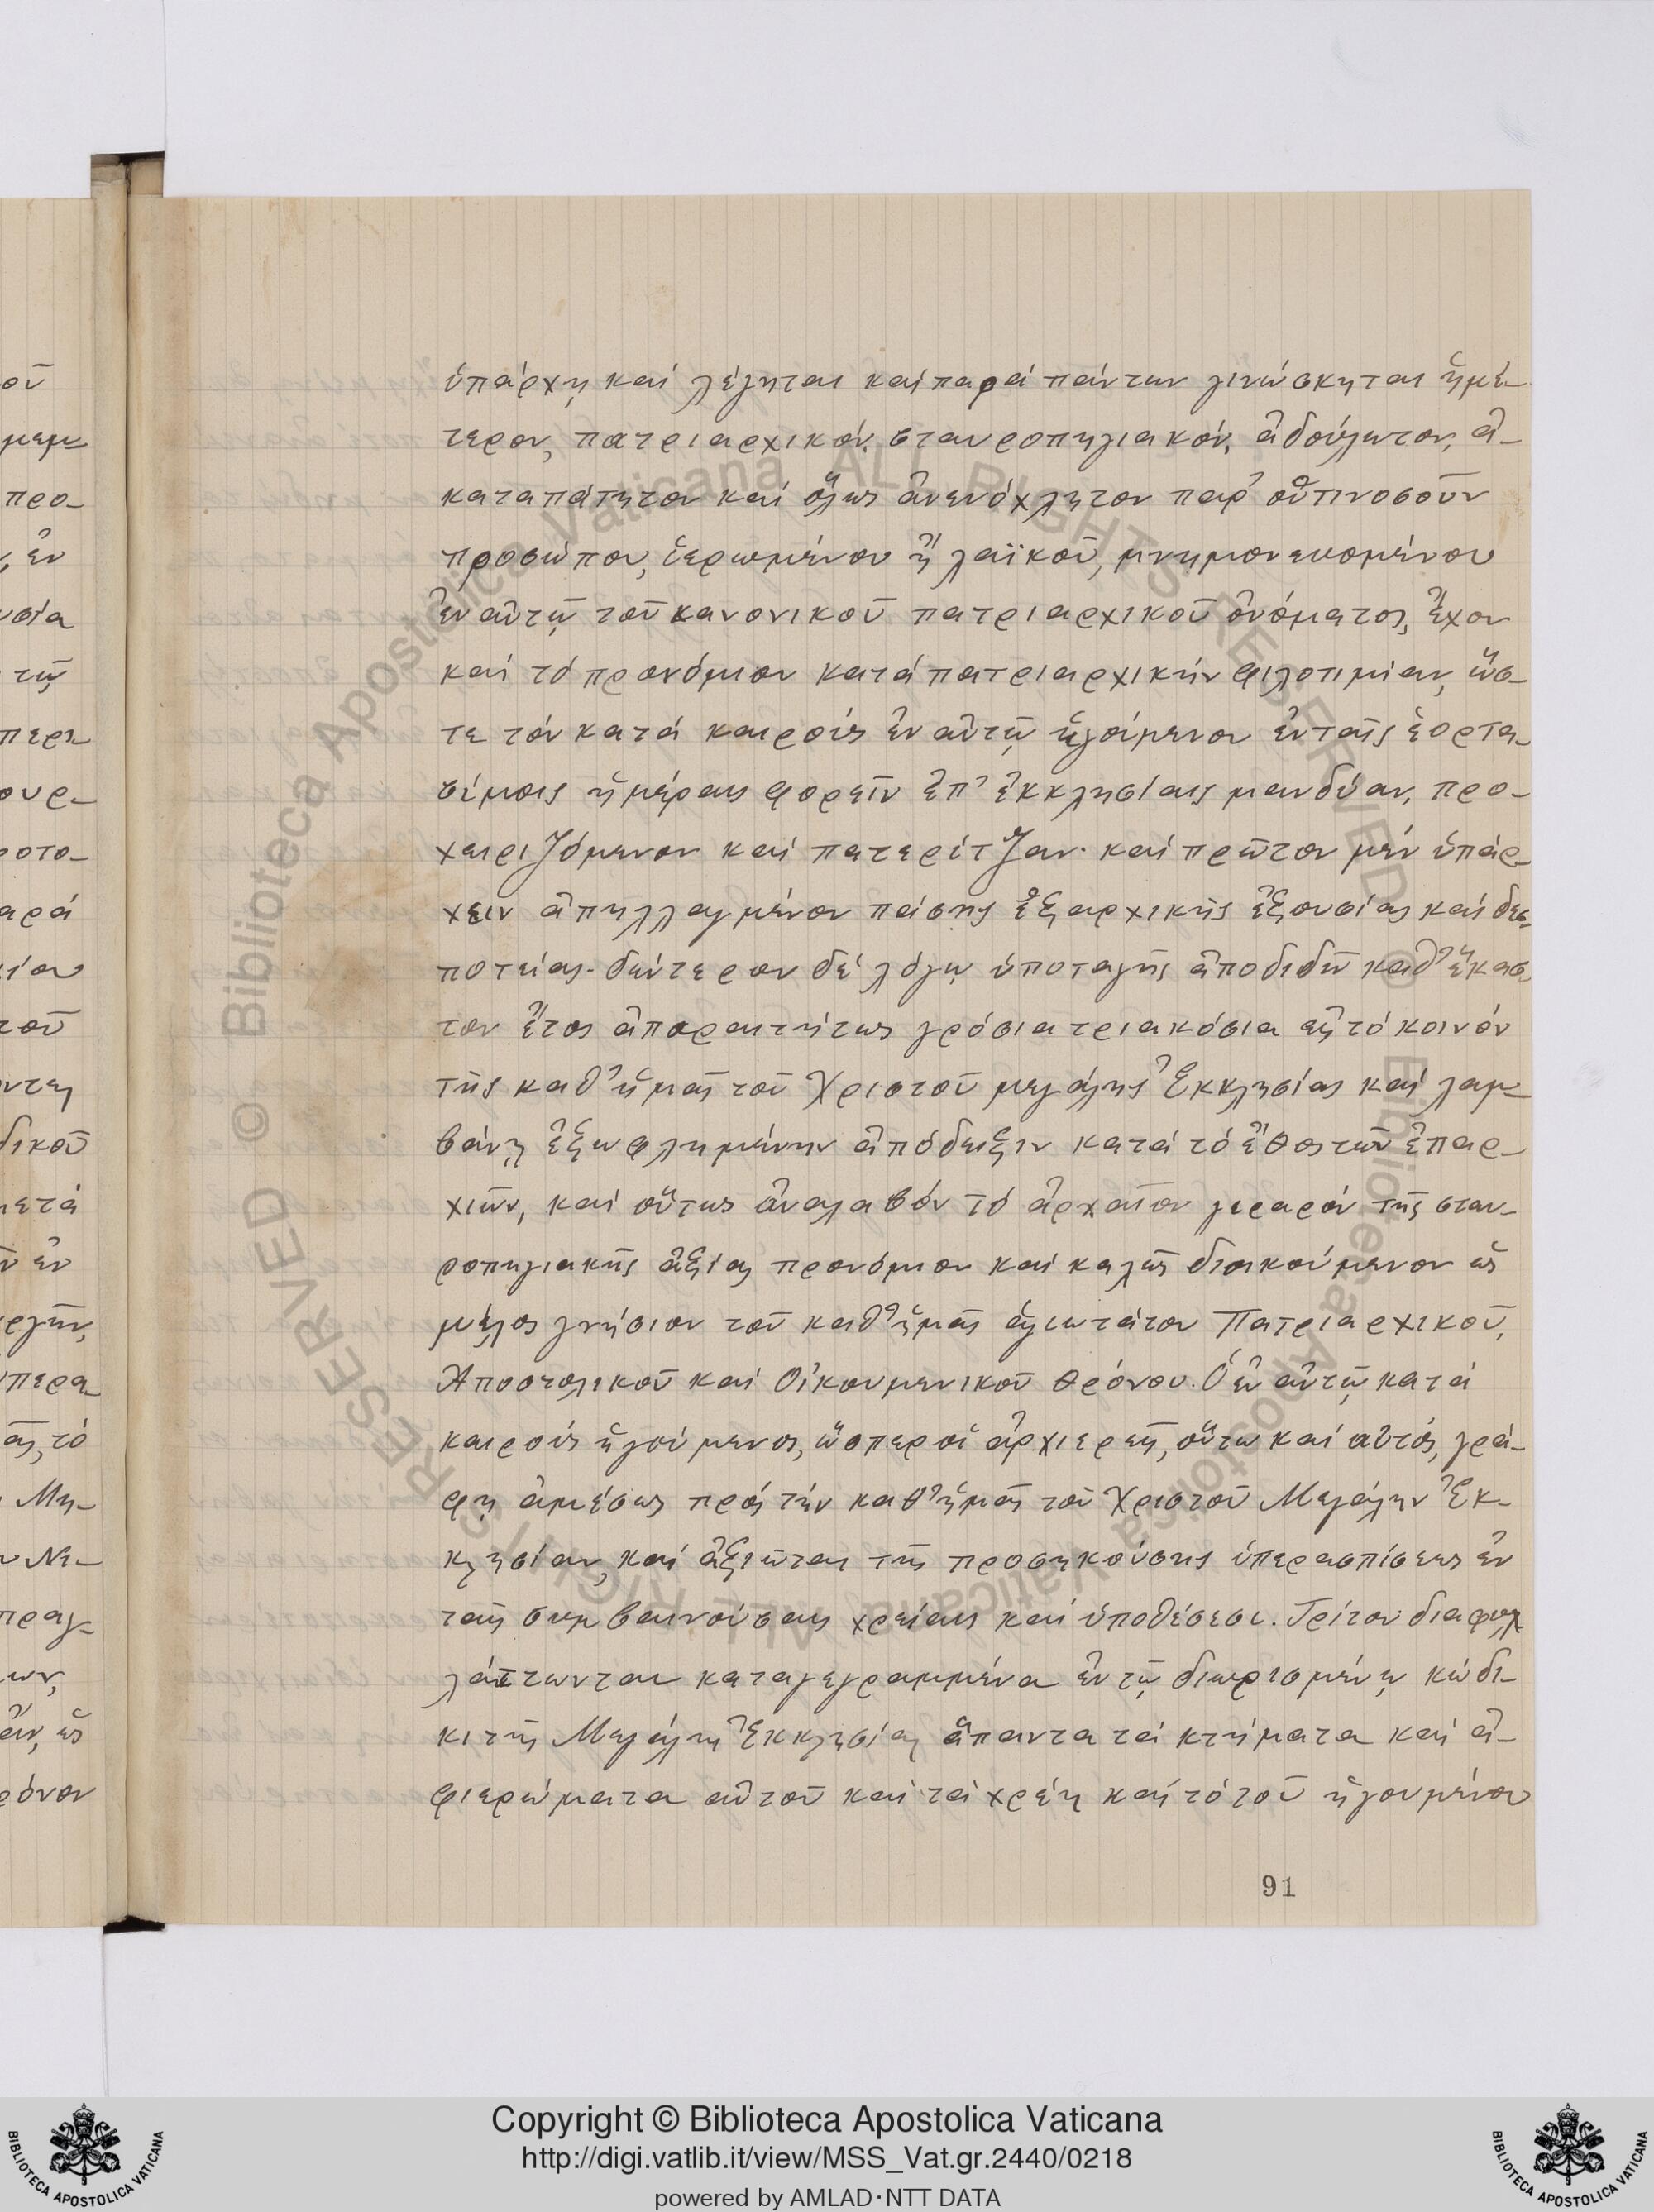 ὑπάρχῃ καὶ λέγηται καὶ παρὰ πάντων γινώσκηται ἡμέ-
τερον, πατριαρχικόν, σταυροπηγιακόν, ἀδούλωτον, ἀ-
καταπάτητον καὶ ὅλως ἀνενόχλητον παρ' οὑτινοσοῦν
προσώπου, ἱερωμένου ἢ λαϊκοῦ, μνημονευομένου
ἐν αὐτῷ τοῦ κανονικοῦ πατριαρχικοῦ ὀνόματος, ἔχον
καὶ τὸ προνόμιον κατὰ πατριαρχικὴν φιλοτιμίαν, ὥσ-
τε τὸν κατὰ καιροὺς ἐν αὐτῷ ἡγούμενον ἐν ταῖς ἑορτα-
σίμοις ἡμέραις φορεῖν ἐπ' ἐκκλησίαις μανδύαν, προ-
χειριζόμενον καὶ πατερίτζαν· καὶ πρῶτον μὲν ὑπάρ-
χειν ἀπηλλαγμένον πάσης ἐξαρχικῆς ἐξουσίας καὶ δεσ-
ποτείας· δεύτερον δὲ λόγῳ ὑποταγῆς ἀποδιδῷ καθ' ἕκασ
τον ἔτος ἀπαραιτήτως γρόσια τριακόσια εἰς τὸ κοινὸν
τῆς καθ' ἡμᾶς τοῦ Χριστοῦ μεγάλης Ἐκκλησίας καὶ λαμ-
βάνῃ ἐξωφλημένην ἀπόδειξιν κατὰ τὸ ἔθος τῶν ἐπαρ-
χιῶν, καὶ οὕτως ἀναλαβὸν τὸ ἀρχαῖον γεραρὸν τῆς σταυ-
ροπηγιακῆς ἀξίας προνόμιον καὶ καλῶς διοικούμενον ὡς
μέλος γνήσιον τοῦ καθ' ἡμᾶς ἁγιωτάτου Πατριαρχικοῦ,
Ἀποστολικοῦ καὶ Οἰκουμενικοῦ θρόνου. Ὁ ἐν αὐτῷ κατὰ
καιροὺς ἡγούμενος, ὥσπερ οἱ ἀρχιερεῖς, οὕτω καὶ αὐτός, γρά-
φῃ ἀμέσως πρὸς τὴν καθ' ἡμᾶς τοῦ Χριστοῦ Μεγάλην Ἐκ-
κλησίαν, καὶ ἀξιῶται τῆς προσηκούσης ὑπερασπίσεως ἐν
ταῖς συμβαινούσαις χρείαις καὶ ὑποθέσεσι. Τρίτον διαφυλ
λάττωνται καταγεγραμμένα ἐν τῷ διωρισμένῳ κώδι-
κι τῆς Μεγάλης Ἐκκλησίας ἅπαντα τὰ κτήματα καὶ ἀ-
φιερώματα αὐτοῦ καὶ τὰ χρέη καὶ τὸ τοῦ ἡγουμένου
91
Copyright © Biblioteca Apostolica Vaticana
http://digi.vatlib.it/view/MSS_Vat.gr.2440/0218
powered by AMLAD·NTT DATA